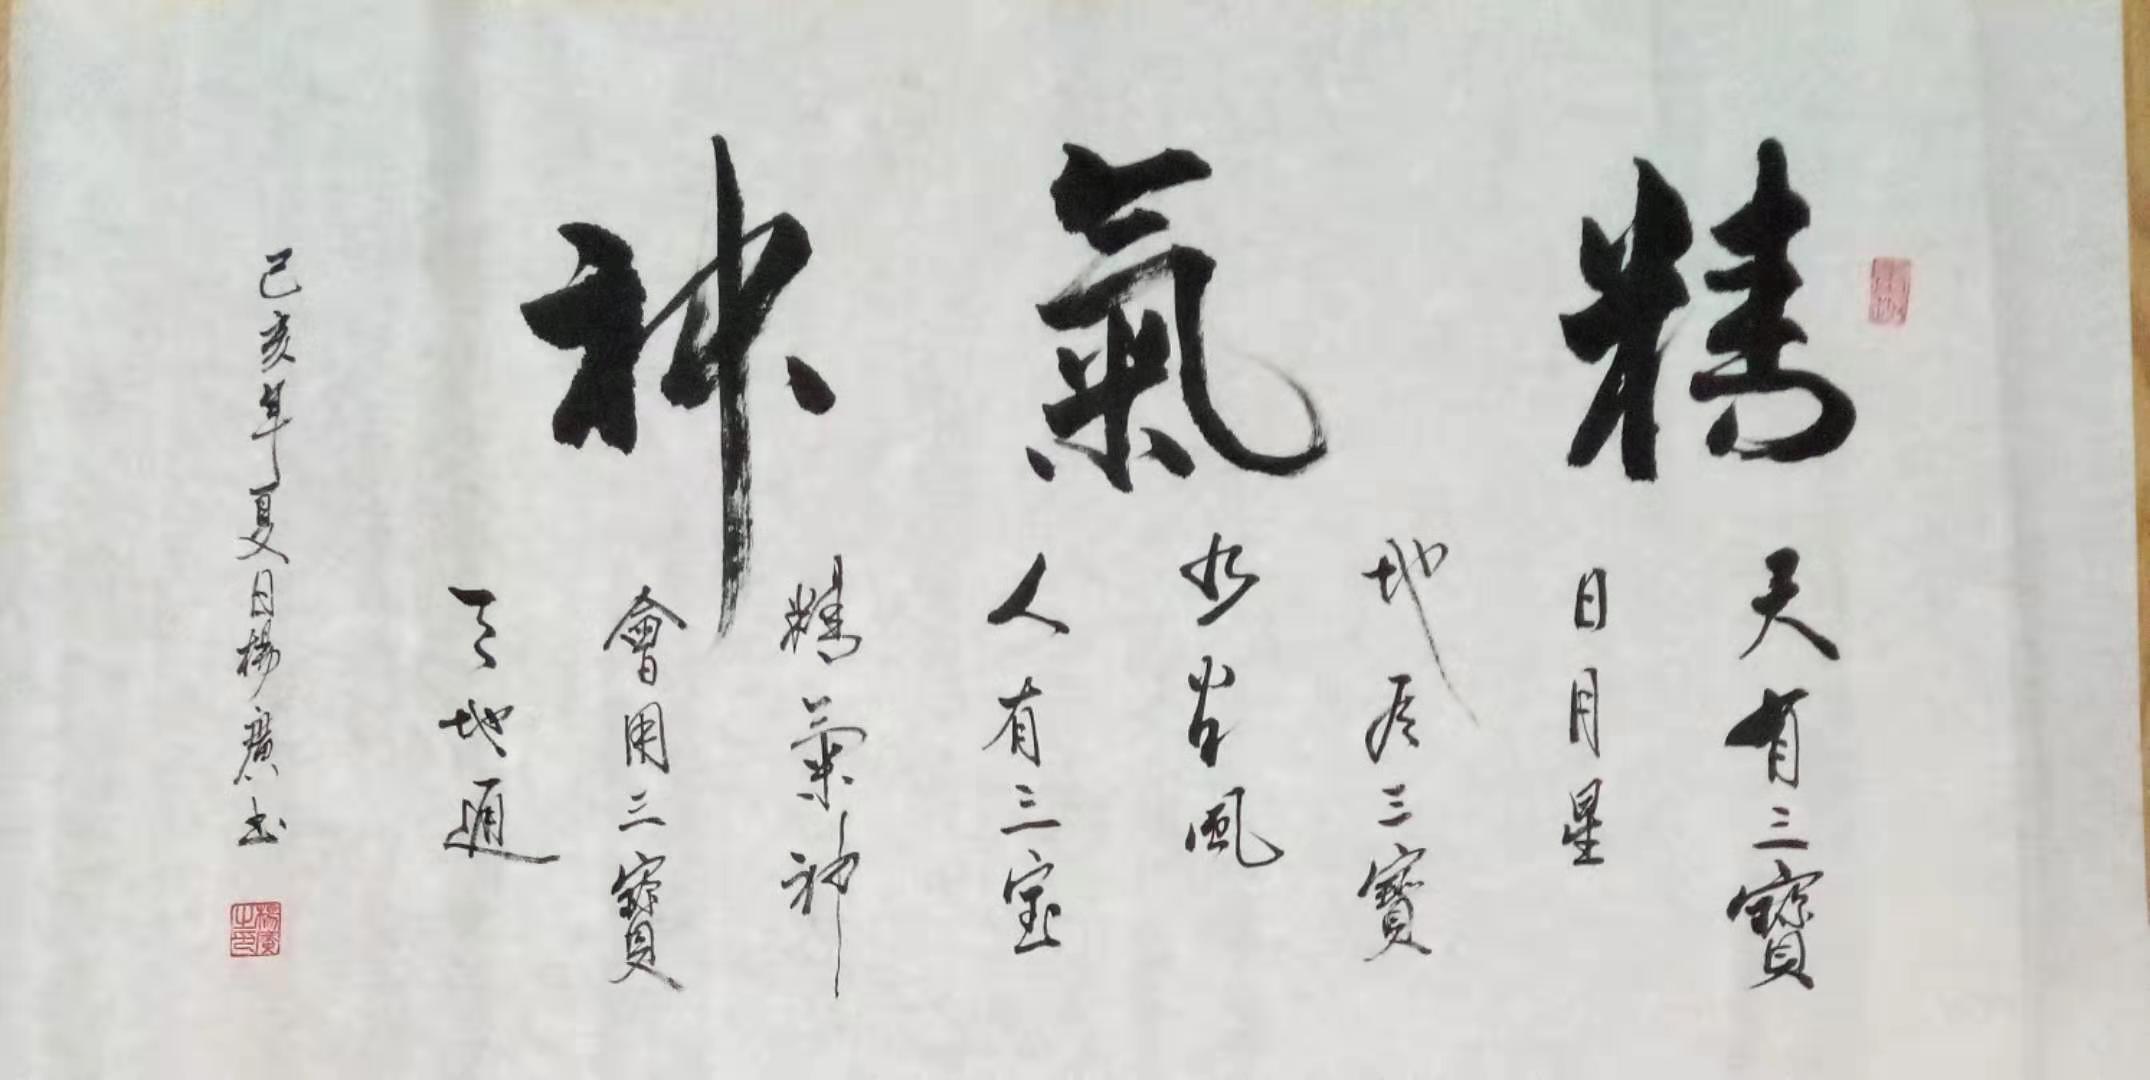 精氣神
天有三寶
日月星
地有三寶
水火風
人有三宝
精氣神
會用三寶
天地通
己亥年夏日楊廣书
楊廣之印